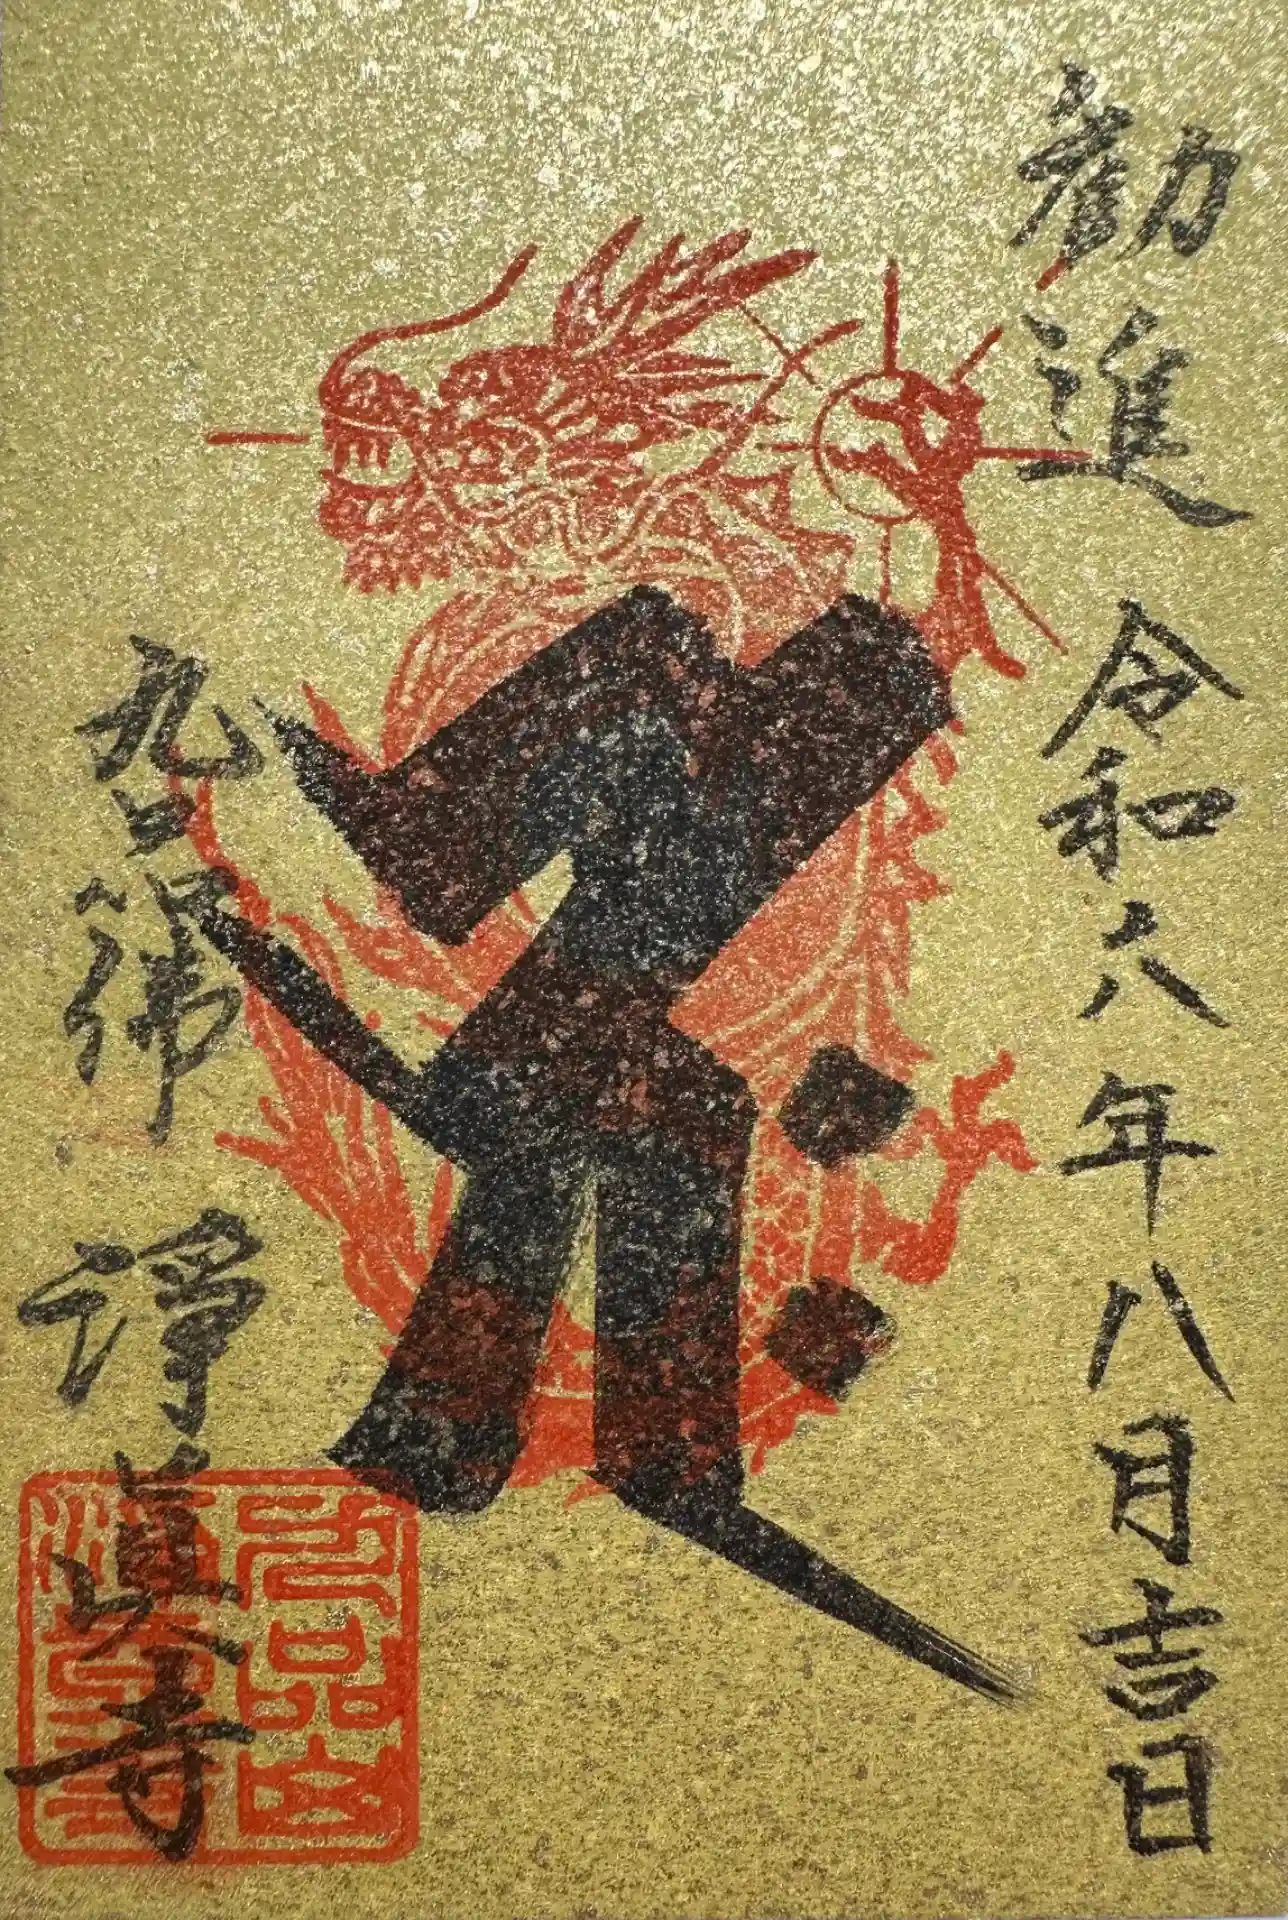 勧進 令和六年八月吉日
九品佛 淨眞寺
九品山